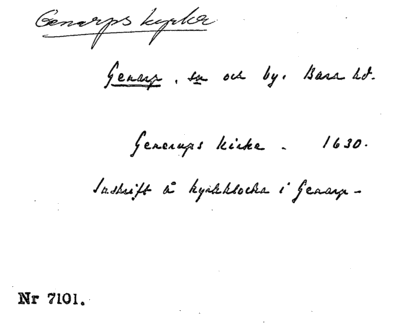 Genarps kyrka
Genarp, sn och by. Bara hd.
Generups Kirke - 1630.
Inskrift å kyrkklocka i Genarp -
Nr 7101.